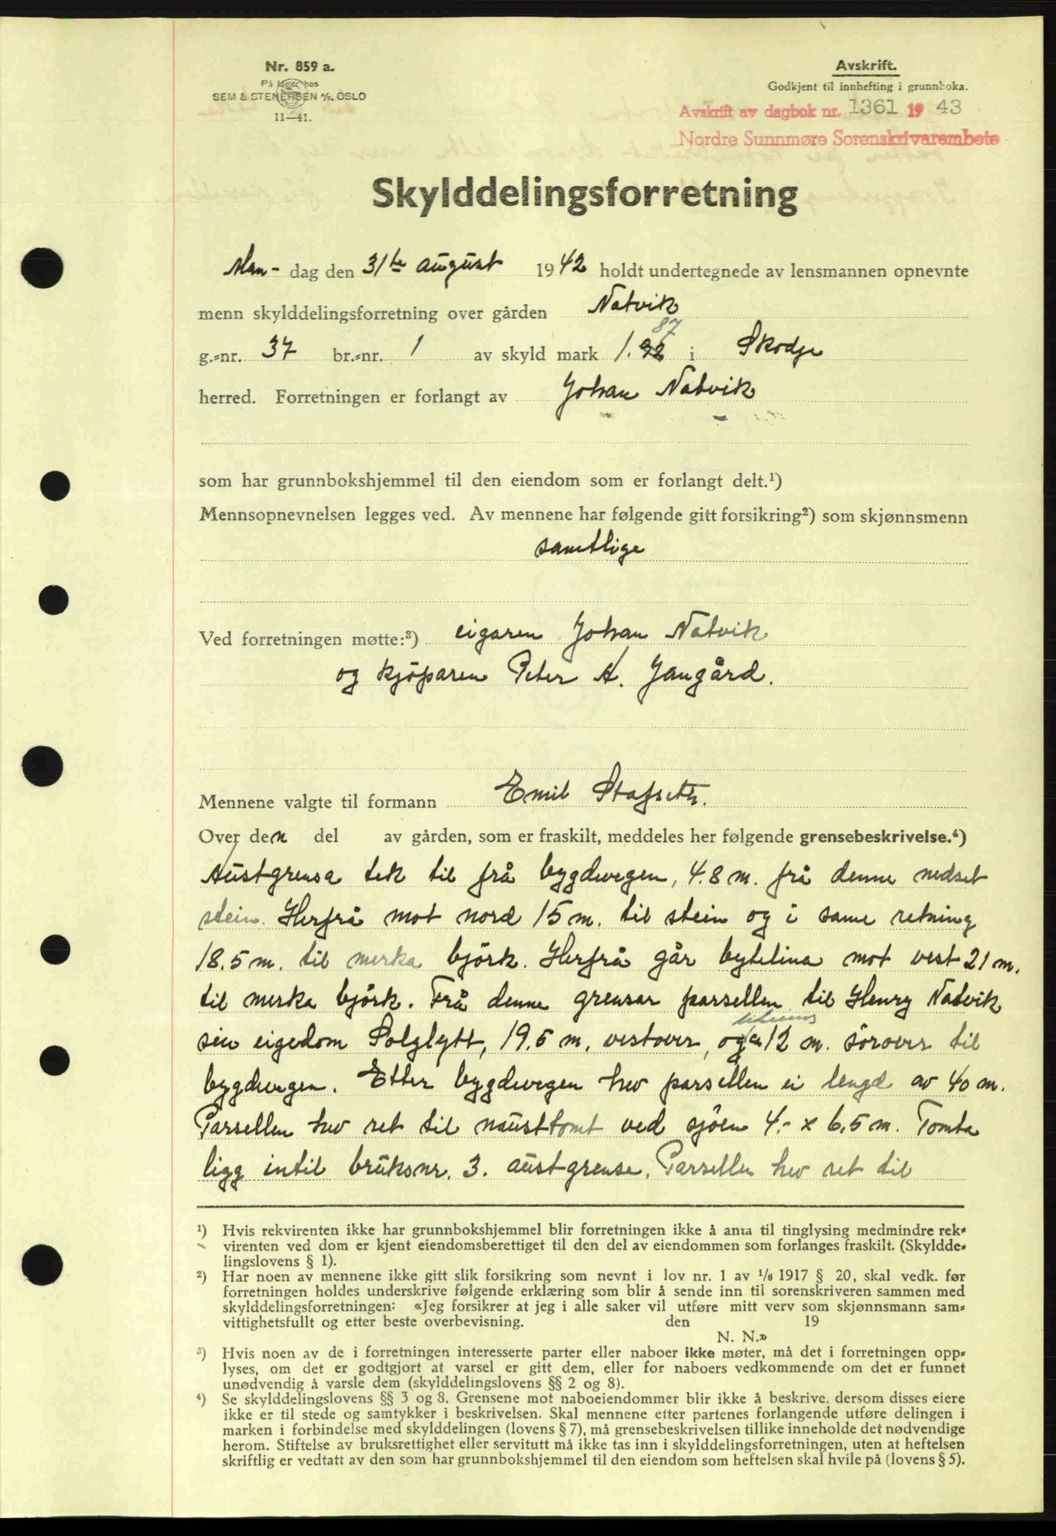 Nr. 859 a.
På lager hos
SEM & STENERSEN A/S, OSLO
11—41.
Avskrift.
Godkjent til innhefting i grunnboka.
Avskrift av dagbok nr. 1361 19 43
Nordre Sunnmøre Sorenskrivarembete
Skylddelingsforretning
Man- dag den 31te august 1942 holdt undertegnede av lensmannen opnevnte
menn skylddelingsforretning over gården Natvik
87
g.-nr. 37 br.-nr. 1 av skyld mark 1.92 i Skodje
herred. Forretningen er forlangt av Johan Natvik
som har grunnbokshjemmel til den eiendom som er forlangt delt.¹)
Mennsopnevnelsen legges ved. Av mennene har følgende gitt forsikring²) som skjønnsmenn
samtlige
Ved forretningen møtte:³) eigaren Johan Natvik
og kjøparen Peter A. Gangård.
Mennene valgte til formann Emil Stafseth.
Over den del av gården, som er fraskilt, meddeles her følgende grensebeskrivelse.⁴)
Austgrensa tek til frå bygdevegen, 4.8 m. frå denne nedset
stein. Herfrå mot nord 15 m. til stein og i same retning
18.5 m. til merka bjørk. Herfrå går bytelina mot vest 21 m.
til merka bjørk. Frå denne grensar parsellen til Henry Natvik
sin eigedom Solglytt, 19.5 m. vestover, og 12 m. sørover til
bygdevegen. Etter bygdevegen hev parsellen ei lengd av 40 m.
Parsellen hev ret til nausttomt ved sjøen 4.- x 6.5 m. Tomta
ligg intil bruksnr. 3. austgrense. Parsellen hev ret til
¹) Hvis rekvirenten ikke har grunnbokshjemmel blir forretningen ikke å anta til tinglysing medmindre rek-
virenten ved dom er kjent eiendomsberettiget til den del av eiendommen som forlanges fraskilt. (Skyldde-
lingslovens § 1).
²) Har noen av mennene ikke gitt slik forsikring som nevnt i lov nr. 1 av 1/6 1917 § 20, skal vedk. før
forretningen holdes underskrive følgende erklæring som blir å sende inn til sorenskriveren sammen med
skylddelingsforretningen: «Jeg forsikrer at jeg i alle saker vil utføre mitt verv som skjønnsmann sam-
vittighetsfullt og etter beste overbevisning. den 19
N. N.»
³) Hvis noen av de i forretningen interesserte parter eller naboer ikke møter, må det i forretningen opp-
lyses, om det er godtgjort at varsel er gitt dem, eller for naboers vedkommende om det er funnet
unødvendig å varsle dem (skylddelingslovens §§ 2 og 8).
⁴) Se skylddelingslovens §§ 3 og 8. Grensene mot naboeiendommer blir ikke å beskrive, dersom disses eiere
ikke er til stede og samtykker i beskrivelsen. Skal mennene etter partenes forlangende utføre delingen i
marken i forbindelse med skylddelingen (lovens § 7), må grensebeskrivelsen tillike inneholde det nødvendige
herom. Stiftelse av bruksrettighet eller servitutt må ikke tas inn i skylddelingsforretningen, uten at heftelsen
skriftlig er vedtatt av den som har grunnbokshjemmel til den eiendom som heftelsen skal hvile på (lovens § 5).